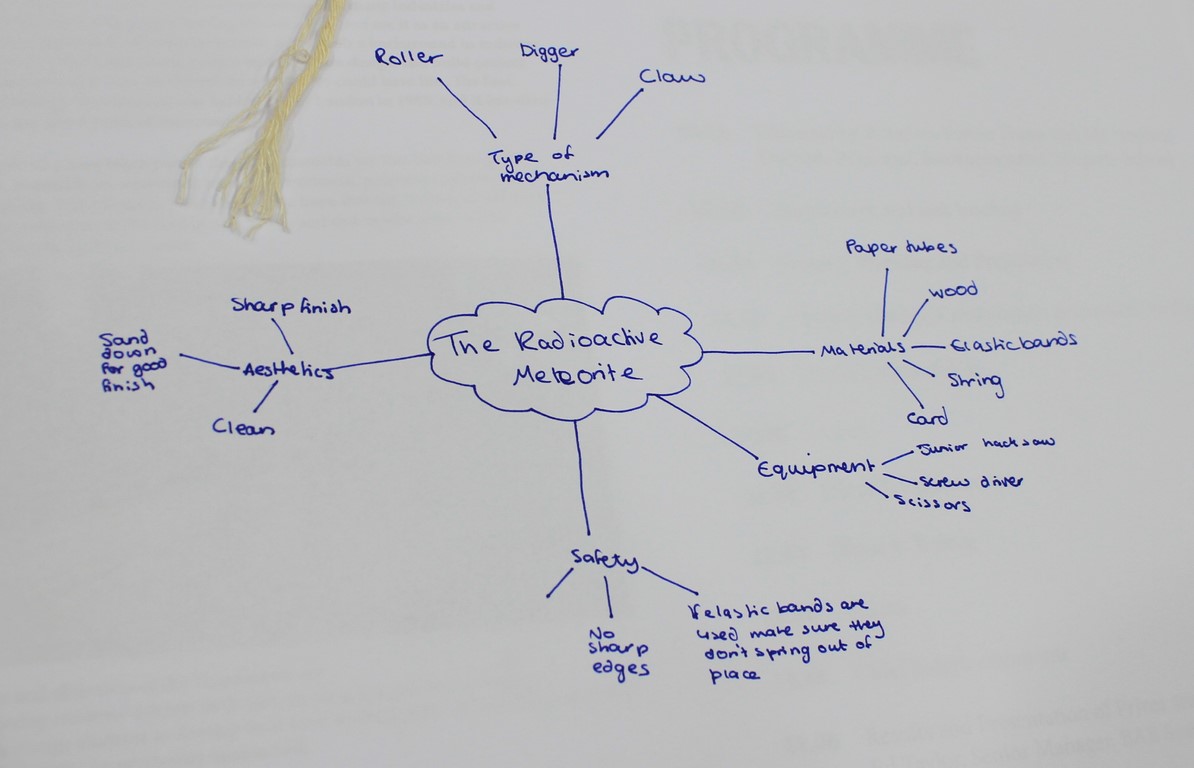 Roller
Digger
Claw
Type of
mechanism
Paper tubes
wood
Materials
Elastic bands
String
Card
Sharp finish
Sand
down
for good
finish
Aesthetics
Clean
The Radioactive
Meteorite
Equipment
Junior hacksaw
screw driver
Scissors
Safety
No
sharp
edges
If elastic bands are
used make sure they
don't spring out of
place
PROGRAMME